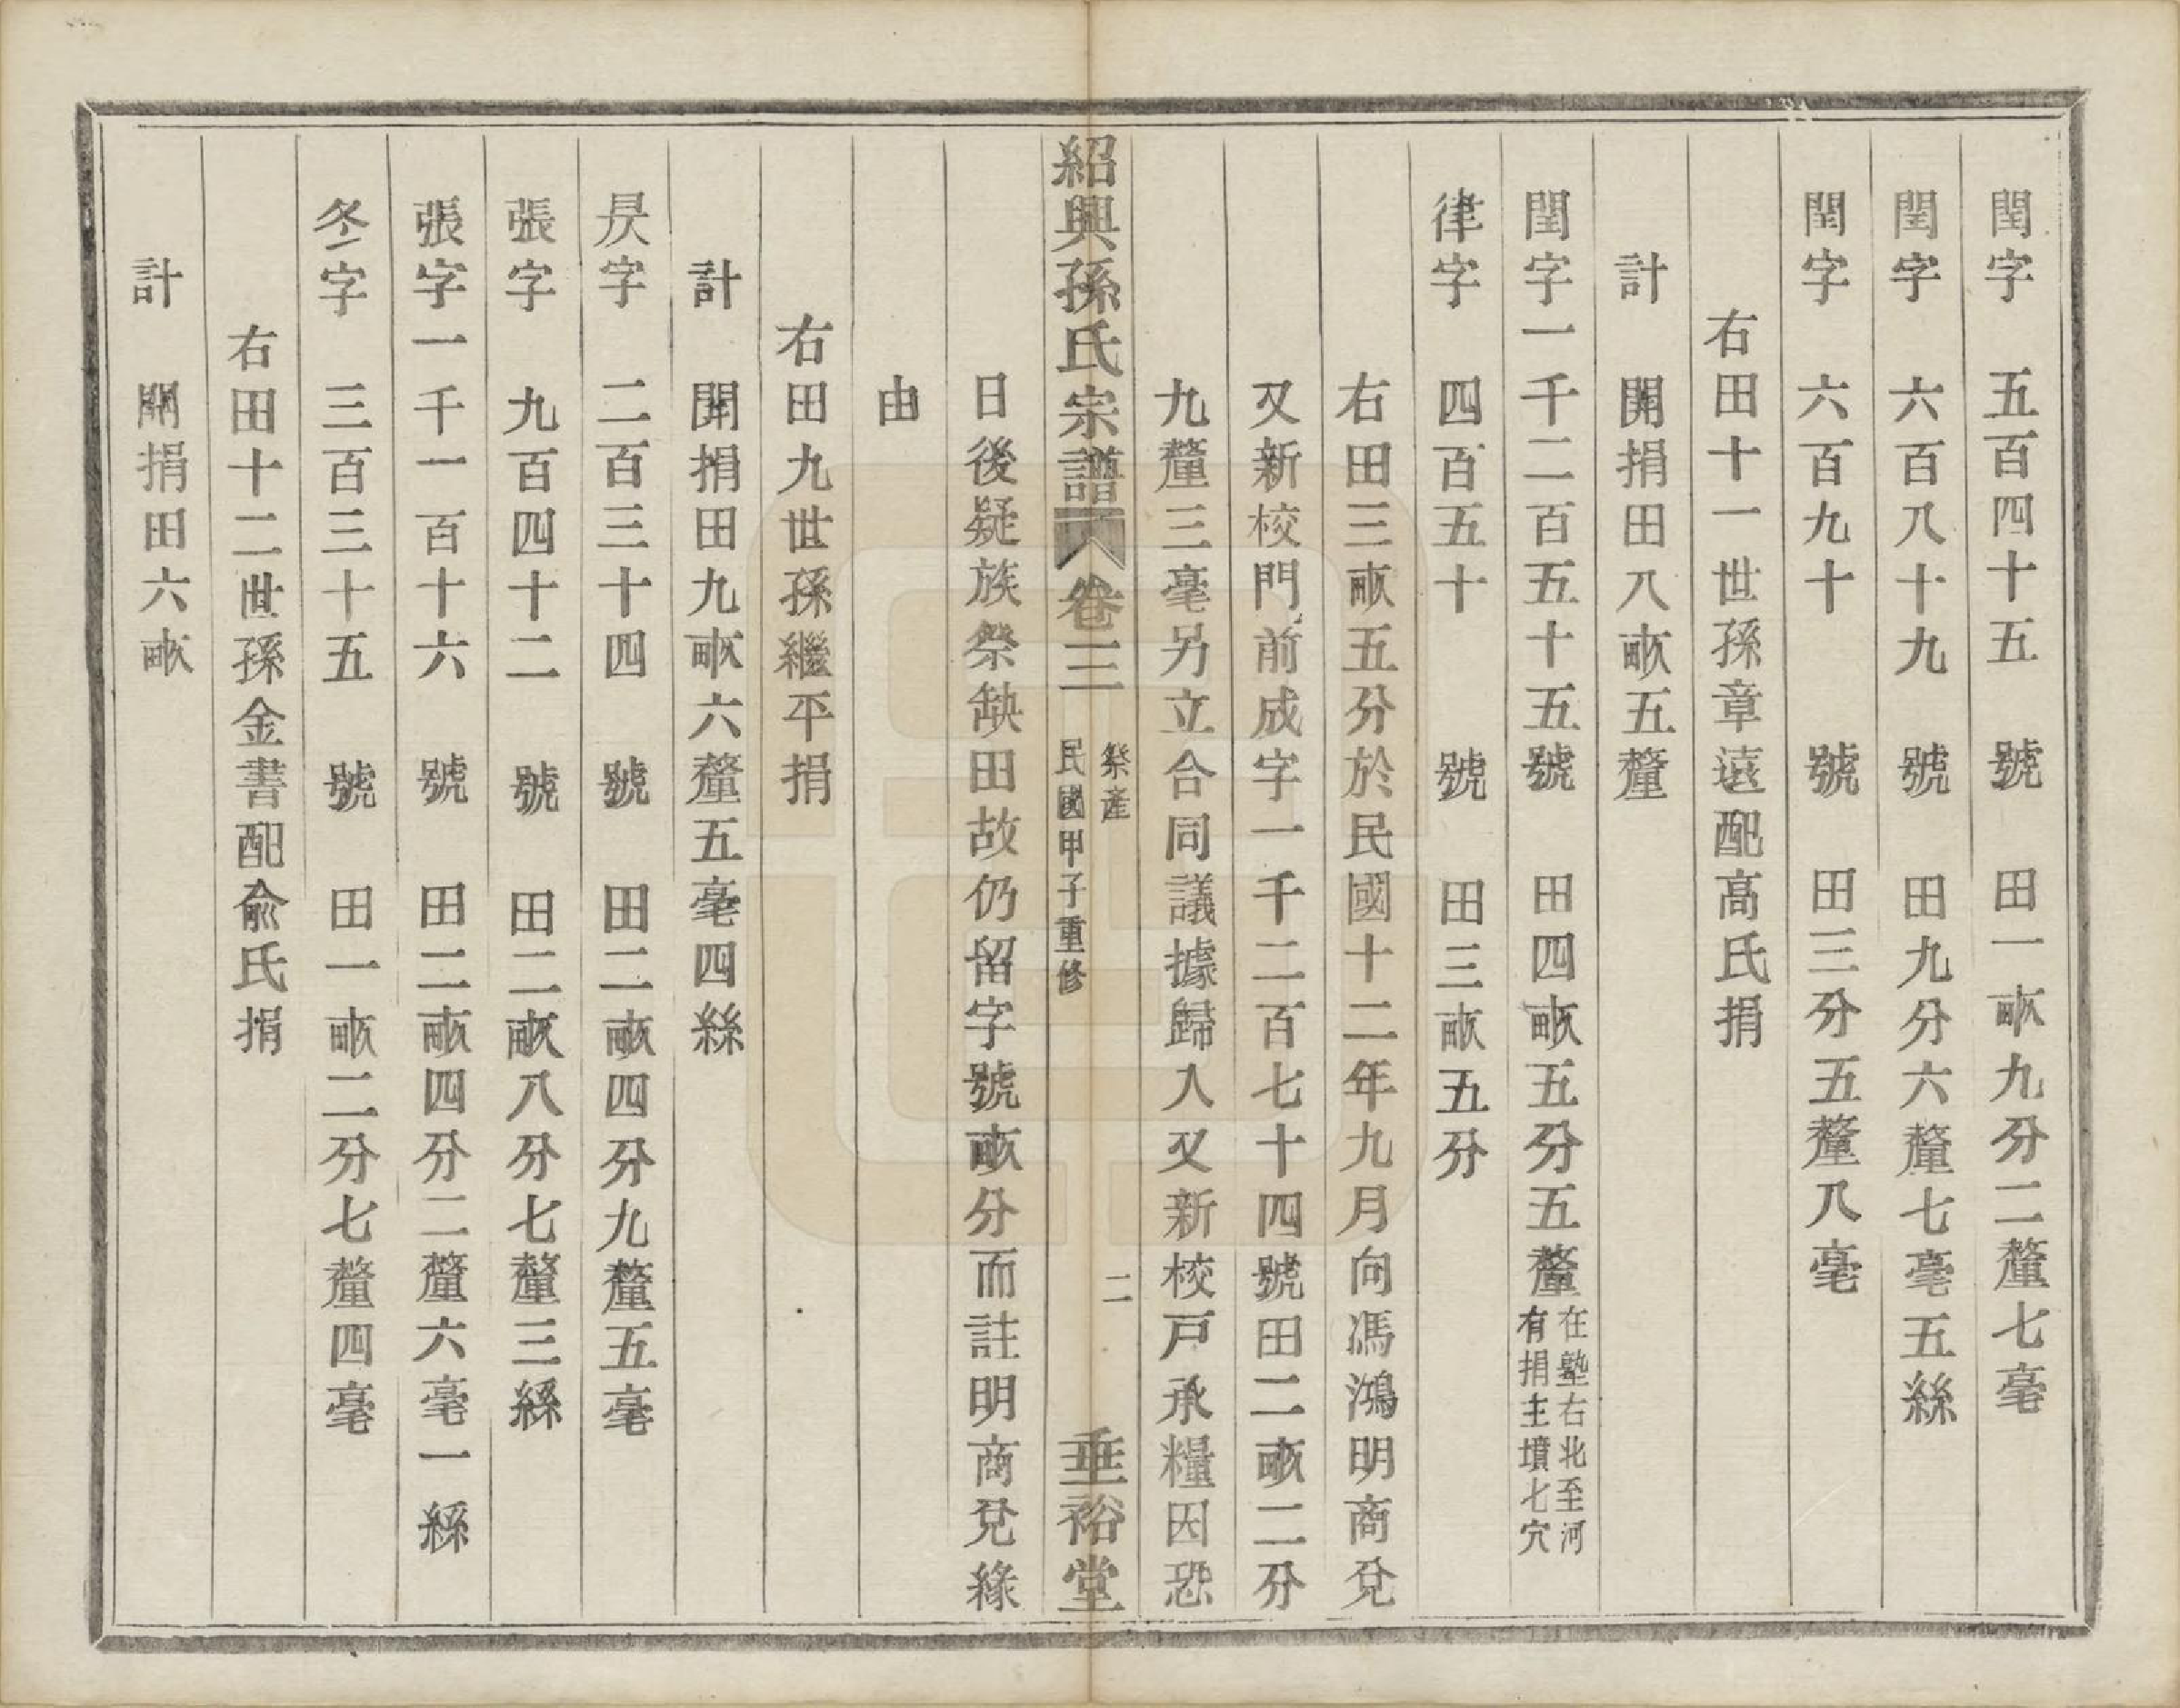 閏字　五百四十五　號　田一畝九分二釐七毫
閏字　六百八十九　號　田九分六釐七毫五絲
閏字　六百九十　號　田三分五釐八毫
右田十一世孫章遠配高氏捐
計　開捐田八畝五釐
閏字一千二百五十五號　田四畝五分五釐在塾右北至河有捐主墳七穴
律字　四百五十　號　田三畝五分
右田三畝五分於民國十二年九月向馮鴻明商兌
又新校門前成字一千二百七十四號田二畝二分
九釐三毫另立合同議據歸入又新校戸承糧因恐
紹興孫氏宗譜　卷三　祭產　民國甲子重修　二　垂裕堂
日後疑族祭缺田故仍留字號畝分而註明商兌緣
由
右田九世孫繼平捐
計　開捐田九畝六釐五毫四絲
昃字　二百三十四　號　田二畝四分九釐五毫
張字　九百四十二　號　田二畝八分七釐三絲
張字一千一百十六　號　田二畝四分二釐六毫一絲
冬字　三百三十五　號　田一畝二分七釐四毫
右田十二世孫金書配俞氏捐
計　開捐田六畝